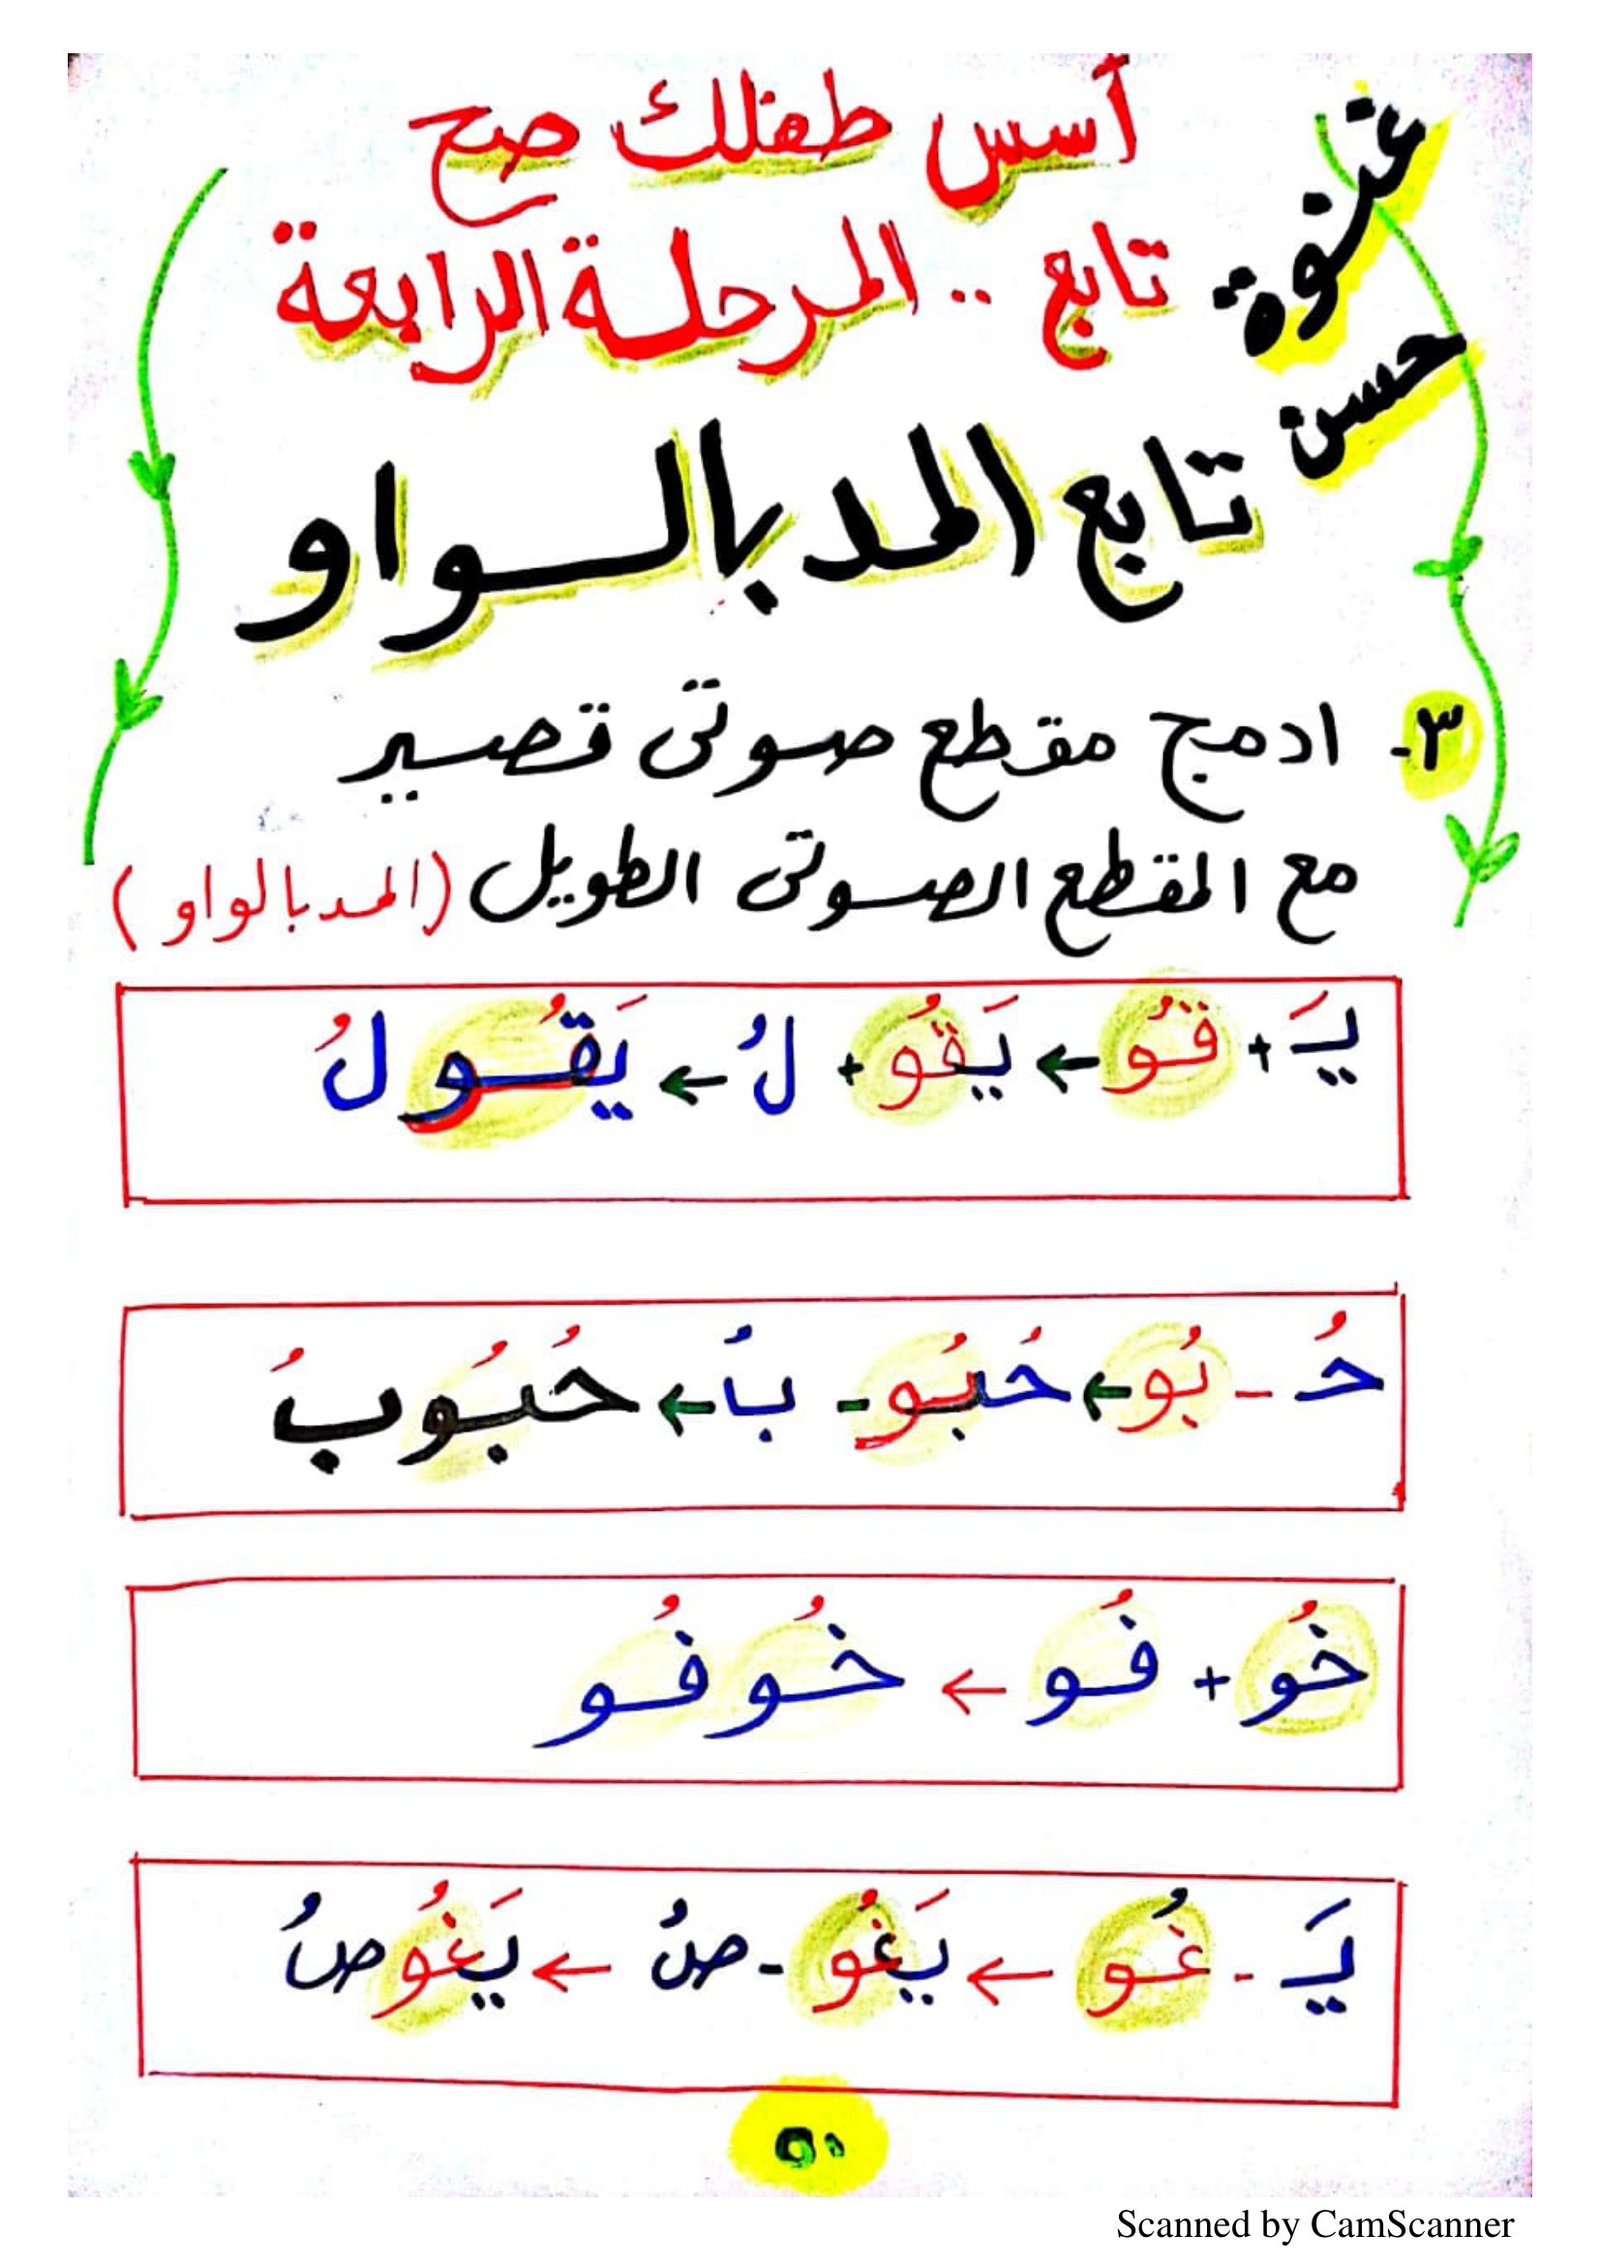 أسس طفلك صح
عنوة حسن
تابع .. المرحلة الرابعة
تابع المد بالواو
٣- ادمج مقطع صوتى قصير
مع المقطع الصوتى الطويل (المد بالواو)
يَـ + قُو ← يَقُو + لُ ← يَقُولُ
حُـ - بُو ← حُبُو - بُ ← حُبُوبُ
خُو + فُو ← خُوفُو
يَـ - غُو ← يَغُو - صُ ← يَغُوصُ
٥٠
Scanned by CamScanner